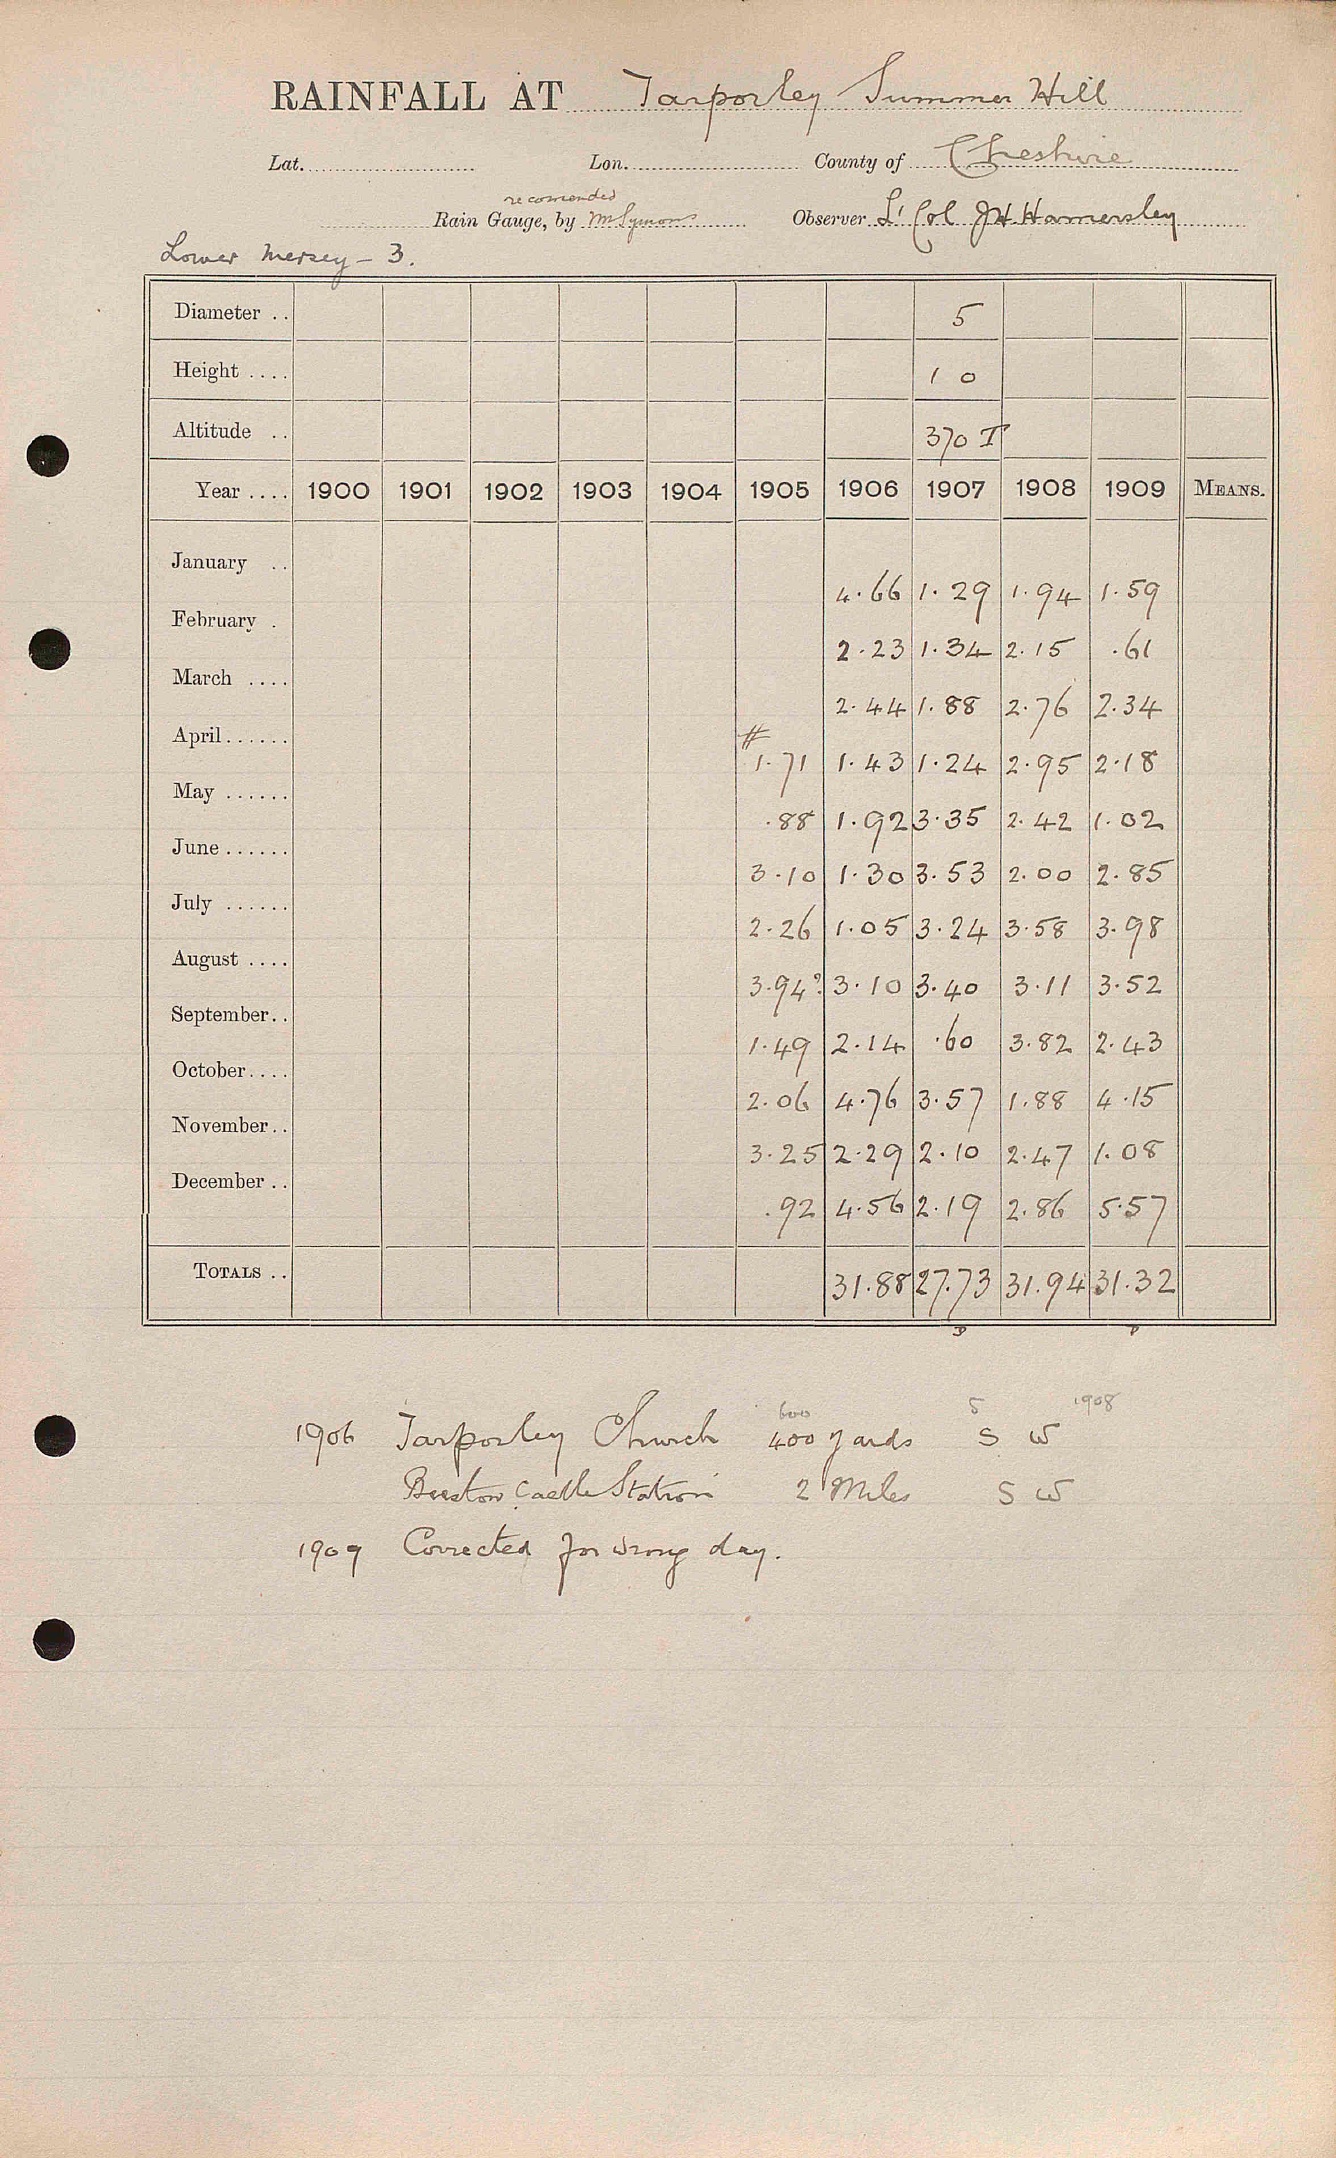 RAINFALL AT Tarporley Summer Hill
Lat. Lon. County of Cheshire
recomended
Rain Gauge, by Mr Symons Observer Lt Col J H Hamersley
Lower Mersey – 3.
Diameter .. 5
Height .... 1 0
Altitude .. 370 T
Year .... 1900 1901 1902 1903 1904 1905 1906 1907 1908 1909 MEANS.
January .. 4.66 1.29 1.94 1.59
February . 2.23 1.34 2.15 .61
March .... 2.44 1.88 2.76 2.34
#
April...... 1.71 1.43 1.24 2.95 2.18
May ...... .88 1.92 3.35 2.42 1.02
June ...... 3.10 1.30 3.53 2.00 2.85
July ...... 2.26 1.05 3.24 3.58 3.98
August .... 3.94? 3.10 3.40 3.11 3.52
September.. 1.49 2.14 .60 3.82 2.43
October.... 2.06 4.76 3.57 1.88 4.15
November.. 3.25 2.29 2.10 2.47 1.08
December .. .92 4.56 2.19 2.86 5.57
TOTALS .. 31.88 27.73 31.94 31.32
600 S 1908
1906 Tarporley Church 400 yards S W
Beeston Castle Station 2 Miles S W
1909 Corrected for wrong day.